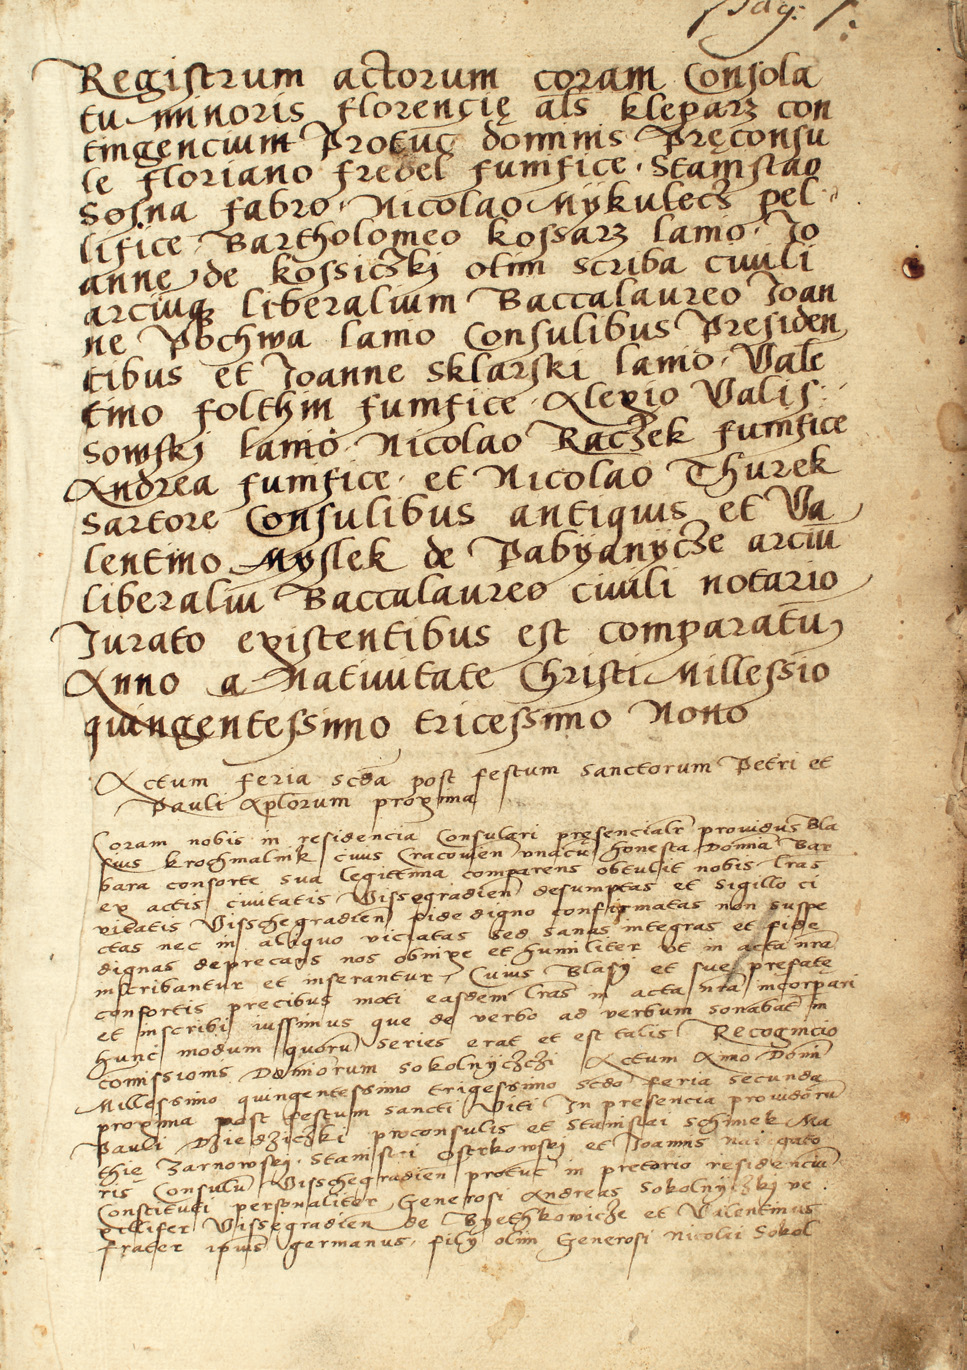 Pag: 1.
Registrum actorum coram Consola
tu minoris florencię als kleparz con
tingencium Protuc dominis Pręconsu
le floriano fredel funifice. Stanislao
Sosna fabro. Nicolao Mykulecz pel
lifice. Bartholomeo kossarz lanio. Jo
anne de kossiczkj olim scriba civili
arciuqz liberalium Baccalaureo Joan
ne Pochwa lanio Consulibus Presiden
tibus et Joanne Sklarski lanio. Vale
tino folthin funifice. Alexio Valis:
sowskj lanio. Nicolao Raczek funifice
Andrea funifice. et Nicolao Thurek
Sartore Consulibus antiquis et Va
lentino Myslek de Pabyanycze arciu
liberaliu Baccalaureo civili notario
Jurato existentibus est comparatu
Anno a Nativitate Christi Millessio
quingentessimo tricessimo Nono
Actum feria scda post festum sanctorum Petri et
Pauli Aplorum proxima
Coram nobis in residencia Consulari pręsencialr providus Bla
sius krochmalnik civis Cracovien unacu honesta Domina Bar
bara consorte sua legittima comparens obtulit nobis lras
ex actis civitatis Vissegradien desumptas et sigillo ci
vitatis Visschegradien fide digno confirmatas non suspe
ctas nec in aliquo viciatas sed sanas integras et fide
dignas deprecans nos obnixe et humiliter ut in acta nra
inscribantur et inserantur, Cuius Blasij et sue prefatę
consortis precibus moti easdem lras in acta nra incorpari
et inscribi iussimus que de verbo ad verbum sonabat in
hunc modum quoru series erat et est talis Recognicio
comissionis Dominorum Sokolnyczkj Actum Anno Domi
Millessimo quingentessimo trigessimo scdo feria secunda
proxima post festum sancti Viti In presencia providoru
Pauli Dziedziczki proconsulis et Stanislai Schimek Ma
thię Zarnowskj. Stanislai Ostrkowskj et Joannis
ris Consulu Visschegradien protuc in pretorio residenciu
Constituti personaliter Generosi Andreas Sokolnyczkj ve
xillifer Vissegradien de Byethkowicze et Valentinus
frater ipius germanus. filij olim Generosi Nicolai Sokol